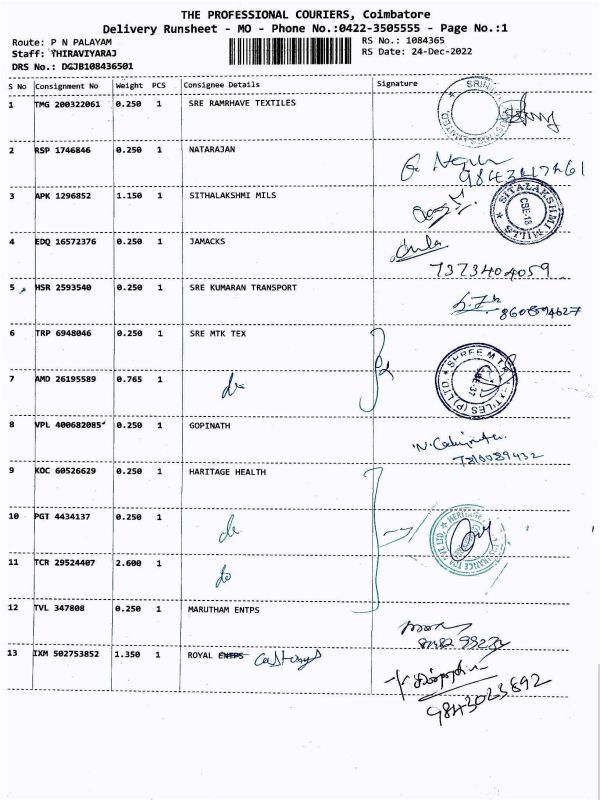 THE PROFESSIONAL COURIERS, Coimbatore
Delivery Runsheet - MO - Phone No.:0422-3505555 - Page No.:1
Route: P N PALAYAM
RS No.: 1084365
Staff: THIRAVIYARAJ
RS Date: 24-Dec-2022
DRS No.: DGJB108436501
S No Consignment No Weight PCS Consignee Details Signature
1 TMG 200322061 0.250 1 SRE RAMRHAVE TEXTILES
2 RSP 1746846 0.250 1 NATARAJAN
3 APK 1296852 1.150 1 SITHALAKSHMI MILS
SITALAKSHMI MILLS
CBE-13
4 EDQ 16572376 0.250 1 JAMACKS
7373404059
5 HSR 2593540 0.250 1 SRE KUMARAN TRANSPORT
6 TRP 6948046 0.250 1 SRE MTK TEX
7 AMD 26195589 0.765 1 do
8 VPL 400682085 0.250 1 GOPINATH
9 KOC 60526629 0.250 1 HARITAGE HEALTH
10 PGT 4434137 0.250 1 do
11 TCR 29524407 2.600 1 do
12 TVL 347808 0.250 1 MARUTHAM ENTPS
13 IXM 502753852 1.350 1 ROYAL ENTPS
9843023692